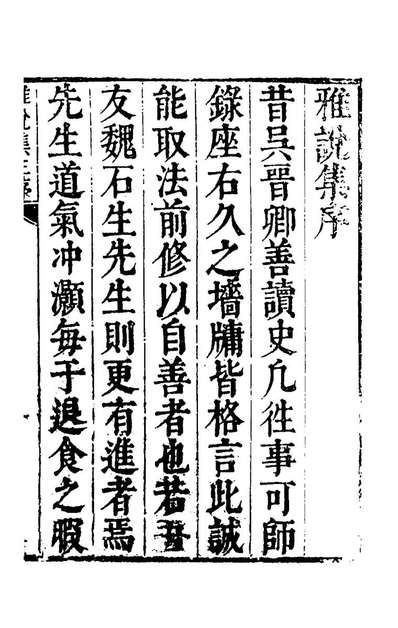 雅說集序
昔吳晉卿善讀史凡徃事可師
錄座右久之墻牗皆格言此誠
能取法前修以自善者也若吾
友魏石生先生則更有進者焉
先生道氣冲灝每于退食之暇